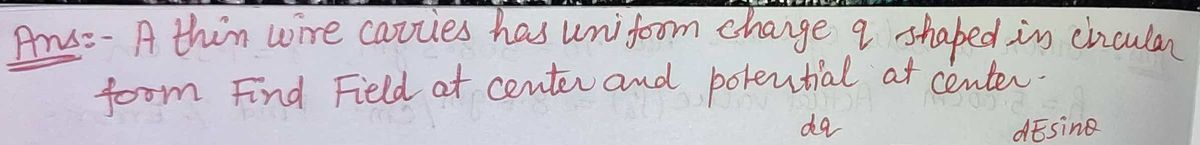 Ans:- A thin wire carries has uniform charge q shaped in circular
form Find Field at center and potential at center.
dq dEsinθ